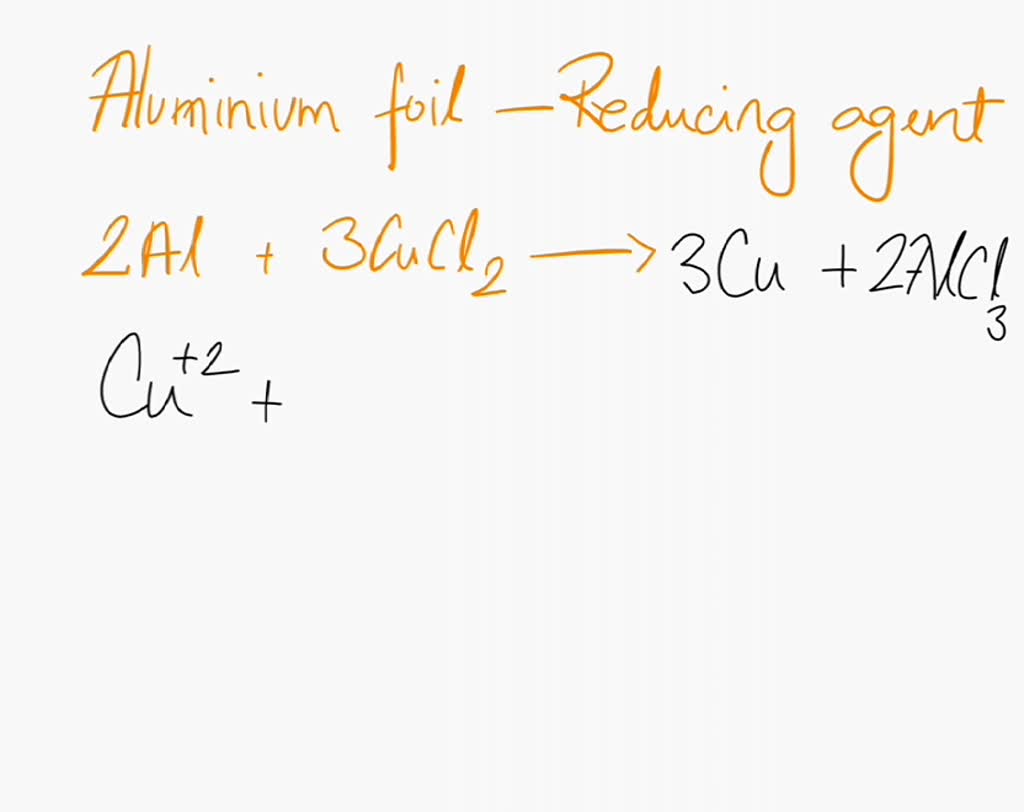 Aluminium foil — Reducing agent
2Al + 3CuCl₂ → 3Cu + 2AlCl₃
Cu⁺² +